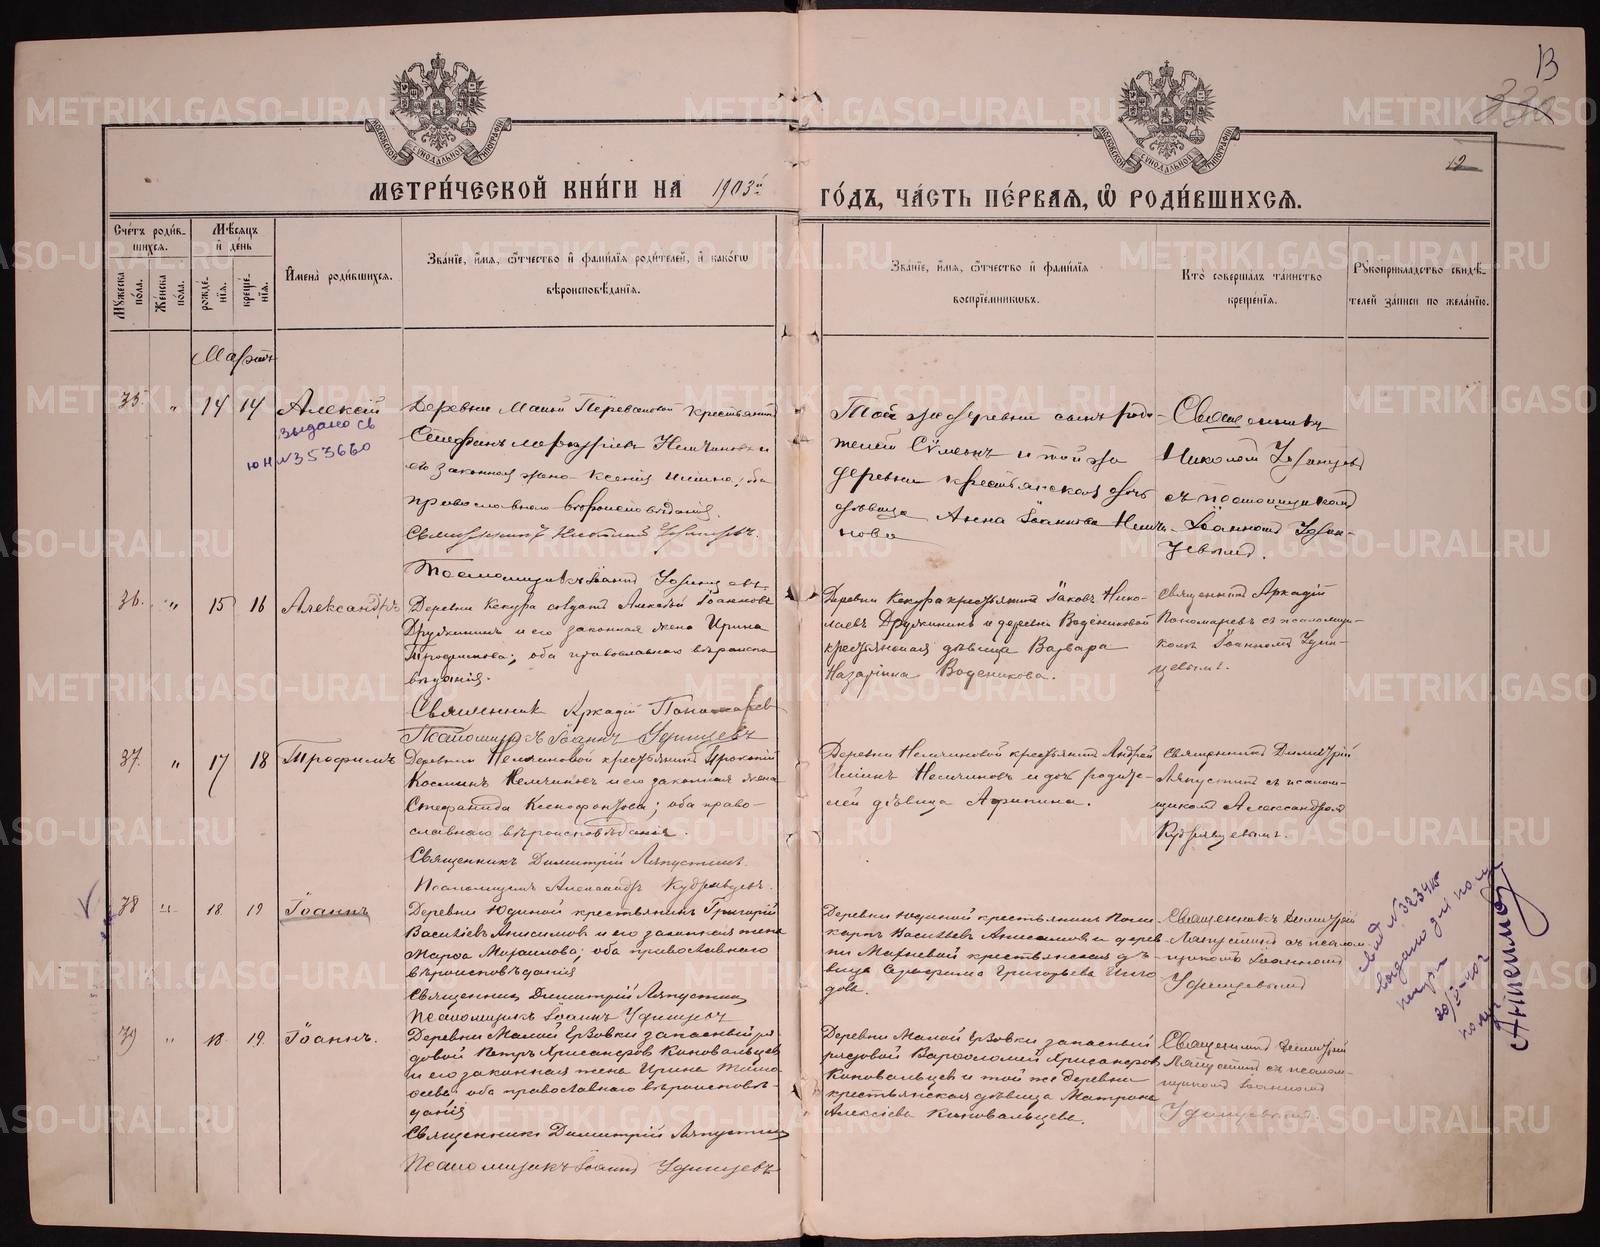 13
330
12
МОСКОВСКОЙ СѴНОДАЛЬНОЙ ТИПОГРАФІИ
МОСКОВСКОЙ СѴНОДАЛЬНОЙ ТИПОГРАФІИ
МЕТРИ́ЧЕСКОЙ КНИ́ГИ НА 1903й ГО́ДЪ, ЧА́СТЬ ПЕ́РВАЯ, Ѡ РОДИ́ВШИХСЯ.
Сче́тъ роди́вшихся.
Мꙋ́жеска пола.
Же́нска пола.
Мѣ́сяцъ и҆ де́нь
рожде́нїя.
креще́нїя.
И҆мена̀ роди́вшихся.
Зва́нїе, и҆́мя, ѻ҆́тчество и҆ фами́лїя роди́телей, и҆ како́гѡ
вѣроисповѣ́данїя.
Зва́нїе, и҆́мя, ѻ҆́тчество и҆ фами́лїя
воспрїе́мникѡвъ.
Кто̀ соверша́лъ та́инство
креще́нїя.
Рꙋкоприкла́дство свидѣ́-
телей за́писи по жела́нїю.
Мартъ
35. " 14 14 Алексій
Выдано св
ю н № 353660
Деревни Малой крестьянинъ
Стефанъ Немчиновъ и
его законная жена Ксенія Ильина; оба
православнаго вѣроисповѣданія.
Священникъ Николай Удинцевъ.
Псаломщикъ Іоаннъ Удинцевъ.
Той же деревни сынъ роди-
телей Сѷмеонъ и той же
деревни крестьянская дочь
дѣвица Анна Іоаннова Немчи-
нова
Священникъ
Николай Удинцевъ
съ псаломщикомъ
Іоанномъ Удин-
цевымъ.
36. " 15 16 Александръ
Деревни Кекура солдатъ Алексѣй Іоанновъ
Дружининъ и его законная жена Ирина
Трофимова; оба православнаго вѣроиспо-
вѣданія.
Священникъ Аркадій Пономаревъ
Псаломщикъ Іоаннъ Удинцевъ
Деревни Кекура крестьянинъ Іаковъ Нико-
лаевъ Дружининъ и деревни Водениковой
крестьянская дѣвица Варвара
Назаріина Воденикова.
Священникъ Аркадій
Пономаревъ съ псаломщи-
комъ Іоанномъ Удин-
цевымъ.
37. " 17 18 Трофимъ
Деревни Немчиновой крестьянинъ Прокопій
Косминъ Немчиновъ и его законная жена
Стефанида Ксенофонтова; оба право-
славнаго вѣроисповѣданія.
Священникъ Димитрій Ляпустинъ.
Псаломщикъ Александръ Кудрявцевъ.
Деревни Немчиновой крестьянинъ Андрей
Ильинъ Немчиновъ и дочь родите-
лей дѣвица Агрипина.
Священникъ Димитрій
Ляпустинъ съ псалом-
щикомъ Александромъ
Кудрявцевымъ.
38 " 18 19 Іоаннъ
Деревни Юдиной крестьянинъ Григорій
Васильевъ Анисимовъ и его законная жена
Марѳа Михаилова; оба православнаго
вѣроисповѣданія
Священникъ Димитрій Ляпустинъ
Псаломщикъ Іоаннъ Удинцевъ
Деревни Юдиной крестьянинъ Поли-
карпъ Васильевъ Анисимовъ и дерев-
ни крестьянская дѣ-
вица Серафима Григорьева
Священникъ Димитрій
Ляпустинъ съ псалом-
щикомъ Іоанномъ
Удинцевымъ
выдано
39 " 18 19 Іоаннъ.
Деревни Малой Ерзовки запасный ря-
довой Петръ Хрисанфовъ Коновальцевъ
и его законная жена Ирина Тимо-
ѳеева; оба православнаго вѣроисповѣ-
данія
Священникъ Димитрій Ляпустинъ
Псаломщикъ Іоаннъ Удинцевъ
Деревни Малой Ерзовки запасный
рядовой Варѳоломей Хрисанфовъ
Коновальцевъ и той же деревни
крестьянская дѣвица Матрона
Алексіева Коновальцева.
Священникъ Димитрій
Ляпустинъ съ псалом-
щикомъ Іоанномъ
Удинцевымъ.
METRIKI.GASO-URAL.RU